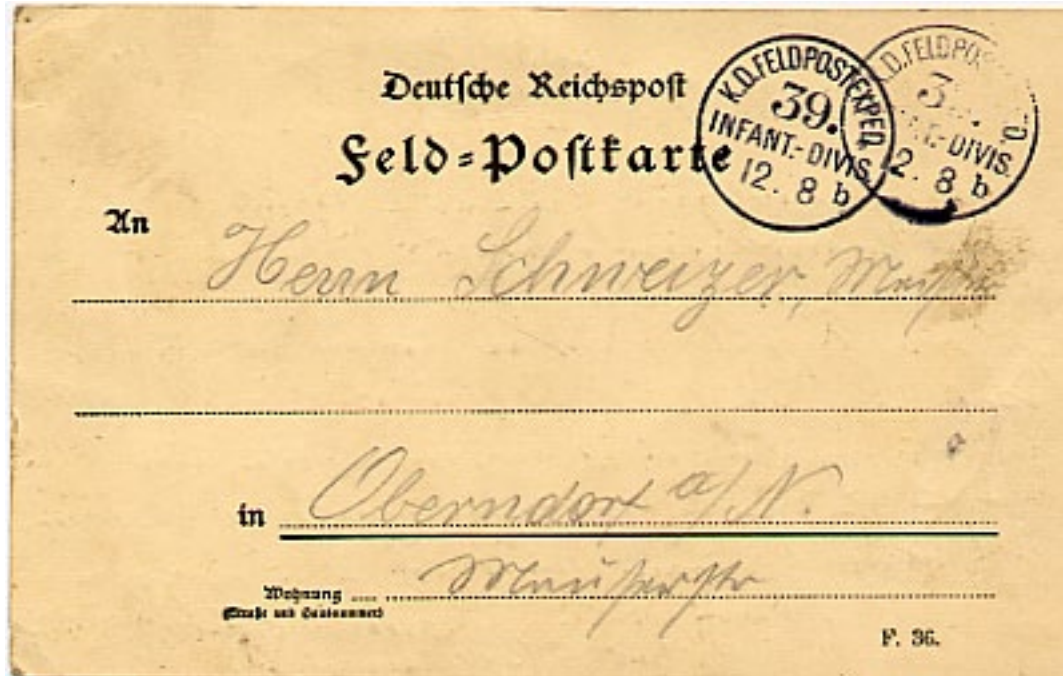 Deutsche Reichspost
Feld=Postkarte
K.D.FELDPOSTEXPED.
39.
INFANT.-DIVIS.
12. 8 b
K.D.FELDPOS
3
-DIVIS.
2. 8 b
An Herrn Schweizer,
in Oberndorf a/N.
Wohnung Mauserstr
(Straße und Hausnummer)
F. 36.